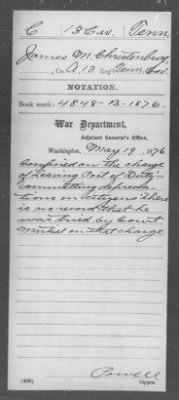 C 13 Cav. Tenn.
James M. Christenbury
Co. A, 13 Reg't Tenn. Cav.
NOTATION.
Book mark: 4848-B-1876.
War Department,
Adjutant General's Office,
Washington, May 19, 1876
Confined on the charge
of Leaving Post of Duty
committing depreda-
tions on Citizens. There
is no record that he
was tried by Court
Martial on that charge.
Powell
Copyist.